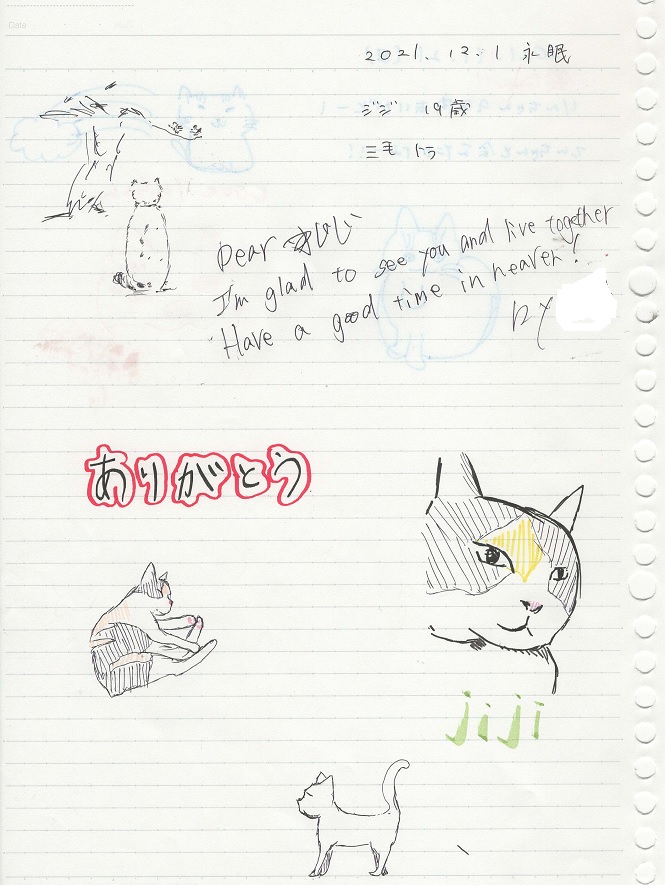 Date
2021.12.1 永眠
ジジ 19歳
三毛 トラ
Dear
I'm glad to see you and live together
Have a good time in heaven!
by
ありがとう
jiji